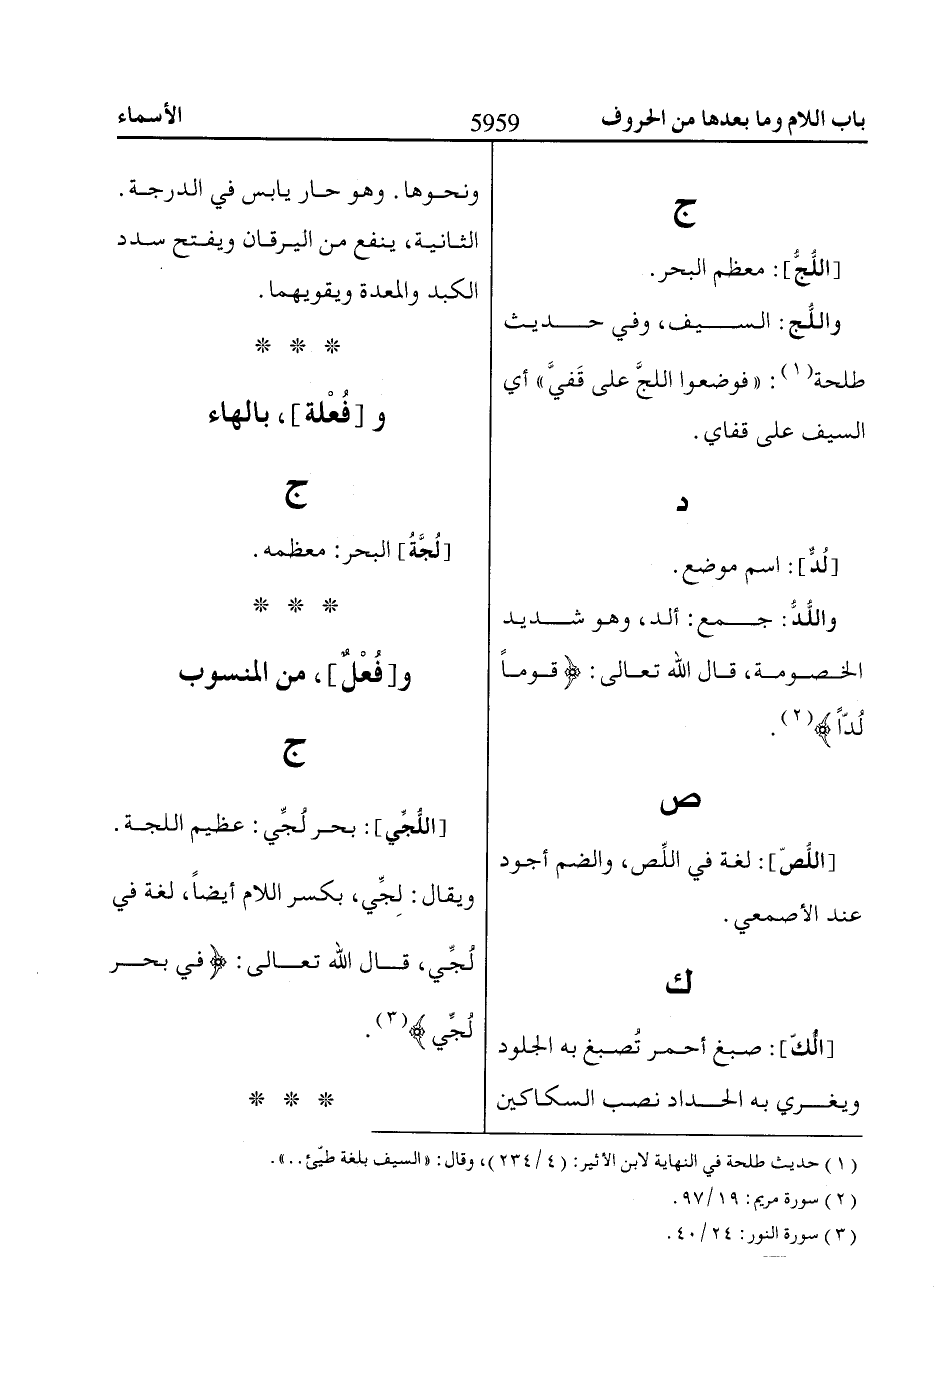 باب اللام وما بعدها من الحروف
5959
الأسماء
ج
[اللُّجُّ]: معظم البحر.
واللُّج: السيف، وفي حديث
طلحة(١): «فوضعوا اللجَّ على قَفيَّ» أي
السيف على قفاي.
د
[لُدٌّ]: اسم موضع.
واللُّدُّ: جمع: ألد، وهو شديد
الخصومة، قال الله تعالى: ﴿قوماً
لُدّاً﴾(٢).
ص
[اللُّصّ]: لغة في اللِّص، والضم أجود
عند الأصمعي.
ك
[الُكّ]: صبغ أحمر تُصبغ به الجلود
ويغري به الحداد نصب السكاكين
ونحوها. وهو حار يابس في الدرجة.
الثانية، ينفع من اليرقان ويفتح سدد
الكبد والمعدة ويقويهما.
* * *
و [فُعْلة]، بالهاء
ج
[لُجَّةُ] البحر: معظمه.
* * *
و[فُعْلٌ]، من المنسوب
ج
[اللُّجِّي]: بحر لُجِّي: عظيم اللجة.
ويقال: لجِّي، بكسر اللام أيضاً، لغة في
لُجِّي، قال الله تعالى: ﴿في بحر
لُجِّي﴾(٣).
* * *
(١) حديث طلحة في النهاية لابن الأثير: (٢٣٤/٤)، وقال: «السيف بلغة طيّئ..».
(٢) سورة مريم: ٩٧/١٩.
(٣) سورة النور: ٤٠/٢٤.